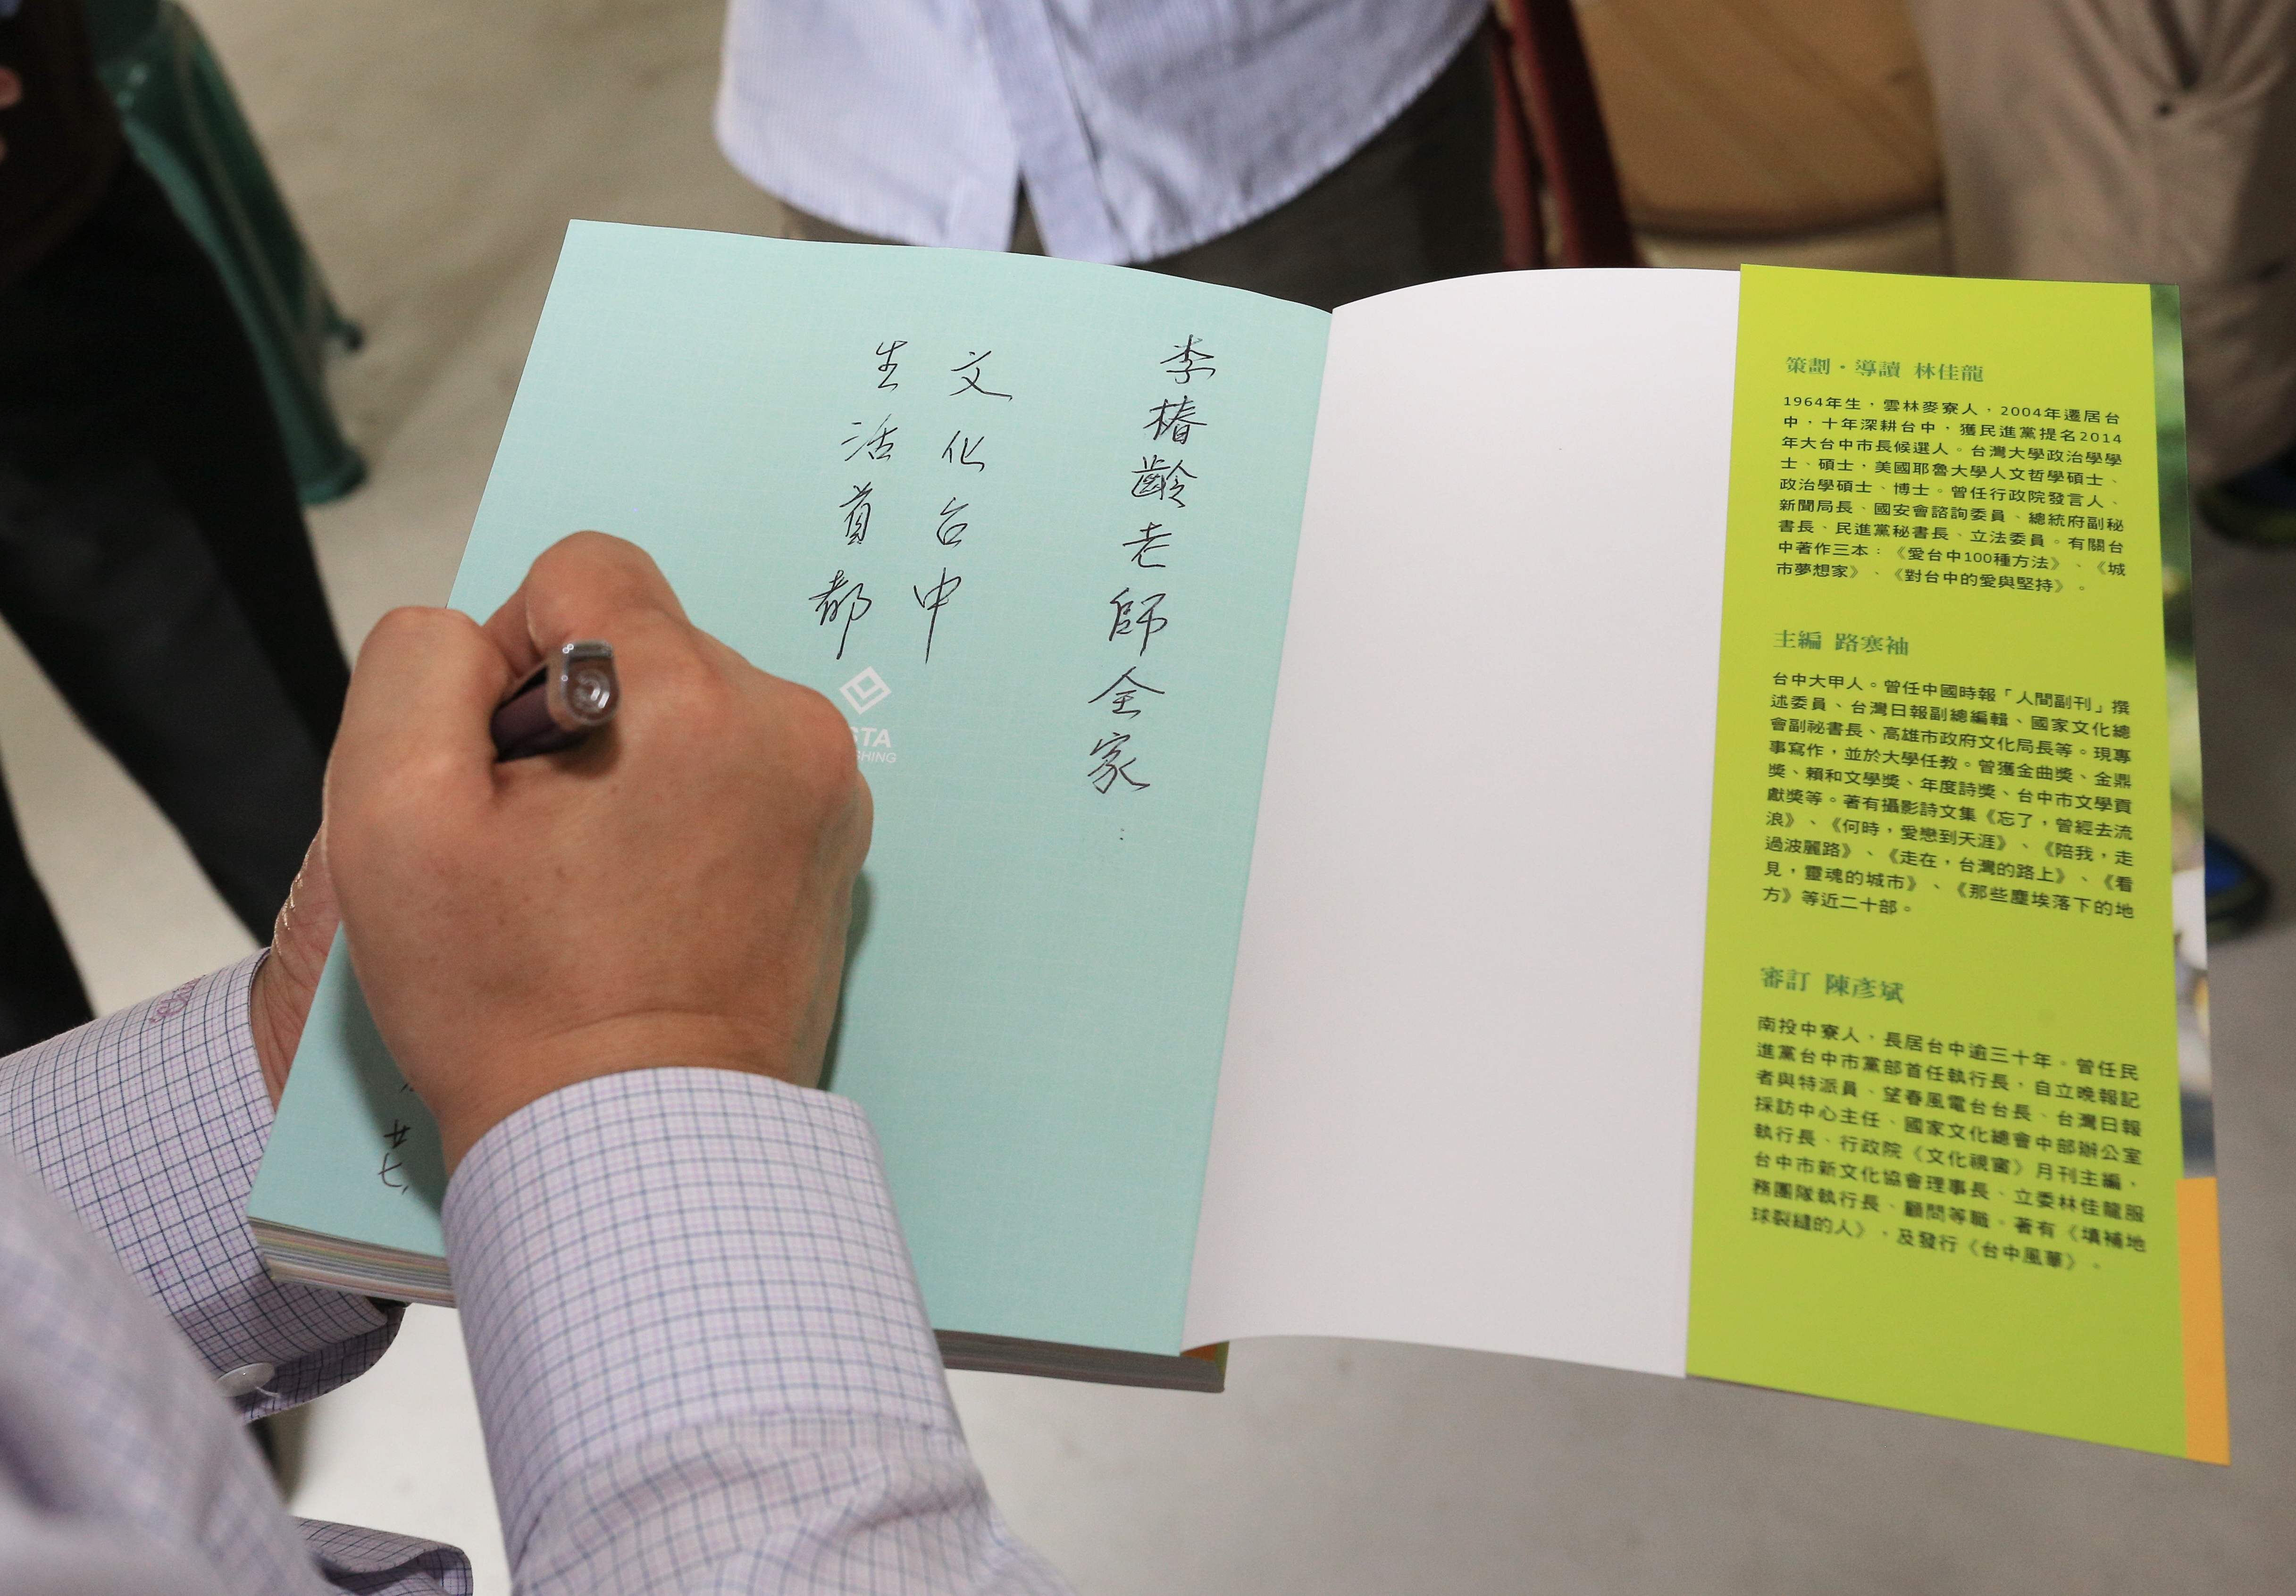 李椿齡老師全家
文化台中
生活首都
STA
SHING
廿七
策劃·導讀 林佳龍
1964年生，雲林麥寮人，2004年遷居台
中，十年深耕台中，獲民進黨提名2014
年大台中市長候選人。台灣大學政治學學
士、碩士，美國耶魯大學人文哲學碩士、
政治學碩士、博士。曾任行政院發言人、
新聞局長、國安會諮詢委員、總統府副秘
書長、民進黨秘書長、立法委員。有關台
中著作三本：《愛台中100種方法》、《城
市夢想家》、《對台中的愛與堅持》。
主編 路寒袖
台中大甲人。曾任中國時報「人間副刊」撰
述委員、台灣日報副總編輯、國家文化總
會副祕書長、高雄市政府文化局長等。現專
事寫作，並於大學任教。曾獲金曲獎、金鼎
獎、賴和文學獎、年度詩獎、台中市文學貢
獻獎等。著有攝影詩文集《忘了，曾經去流
浪》、《何時，愛戀到天涯》、《陪我，走
過波麗路》、《走在，台灣的路上》、《看
見，靈魂的城市》、《那些塵埃落下的地
方》等近二十部。
審訂 陳彥斌
南投中寮人，長居台中逾三十年。曾任民
進黨台中市黨部首任執行長，自立晚報記
者與特派員、望春風電台台長、台灣日報
採訪中心主任、國家文化總會中部辦公室
執行長、行政院《文化視窗》月刊主編、
台中市新文化協會理事長、立委林佳龍服
務團隊執行長、顧問等職。著有《填補地
球裂縫的人》，及發行《台中風華》。